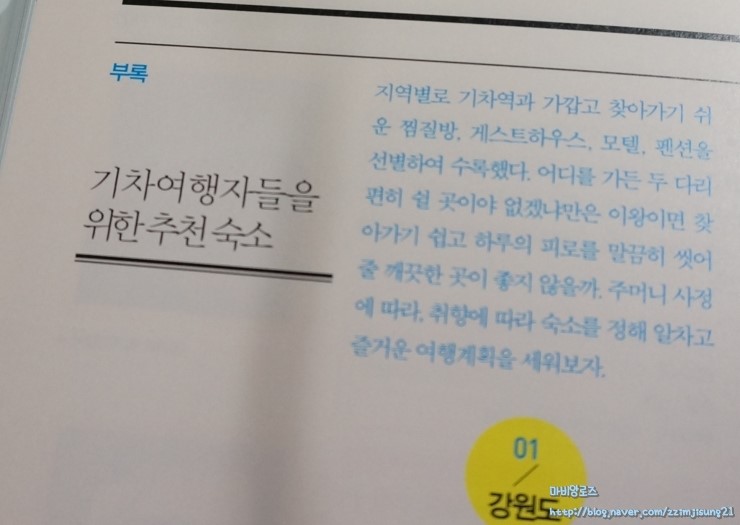 부록
기차여행자들을
위한 추천 숙소
지역별로 기차역과 가깝고 찾아가기 쉬
운 찜질방, 게스트하우스, 모텔, 펜션을
선별하여 수록했다. 어디를 가든 두 다리
편히 쉴 곳이야 없겠냐만은 이왕이면 찾
아가기 쉽고 하루의 피로를 말끔히 씻어
줄 깨끗한 곳이 좋지 않을까. 주머니 사정
에 따라, 취향에 따라 숙소를 정해 알차고
즐거운 여행계획을 세워보자.
01
강원도
마비앙로즈
http://blog.naver.com/zzimjisung21